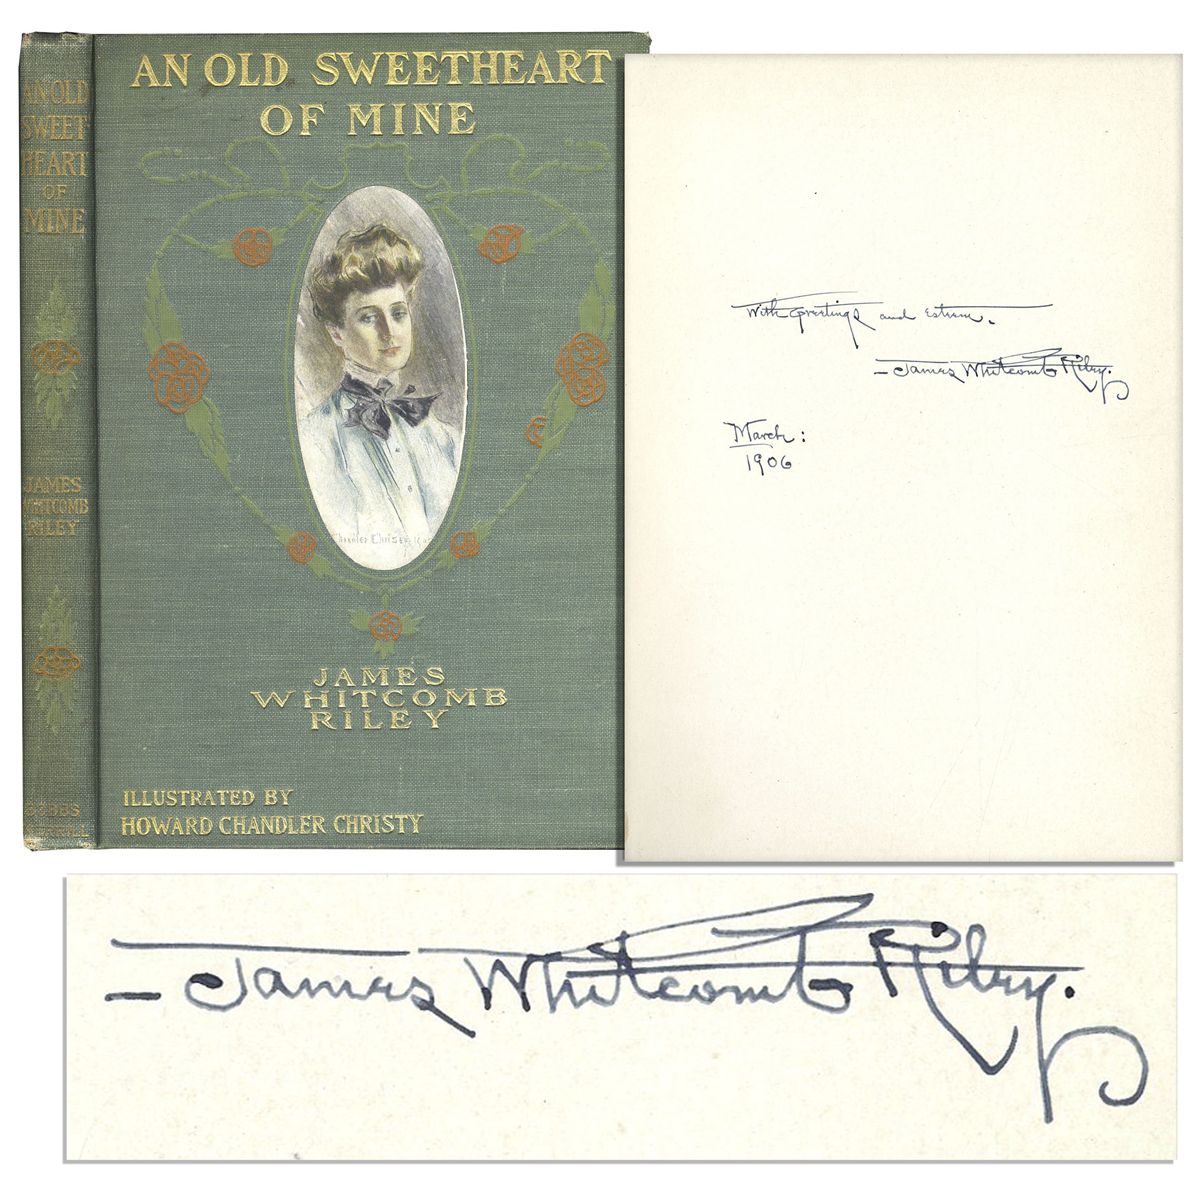 AN OLD
SWEET-
HEART
OF
MINE
JAMES
WHITCOMB
RILEY
BOBBS
MERRILL
AN OLD SWEETHEART
OF MINE
Chandler Christy
JAMES
WHITCOMB
RILEY
ILLUSTRATED BY
HOWARD CHANDLER CHRISTY
With Greetings and Esteem.
—James Whitcomb Riley.
March:
1906
—James Whitcomb Riley.